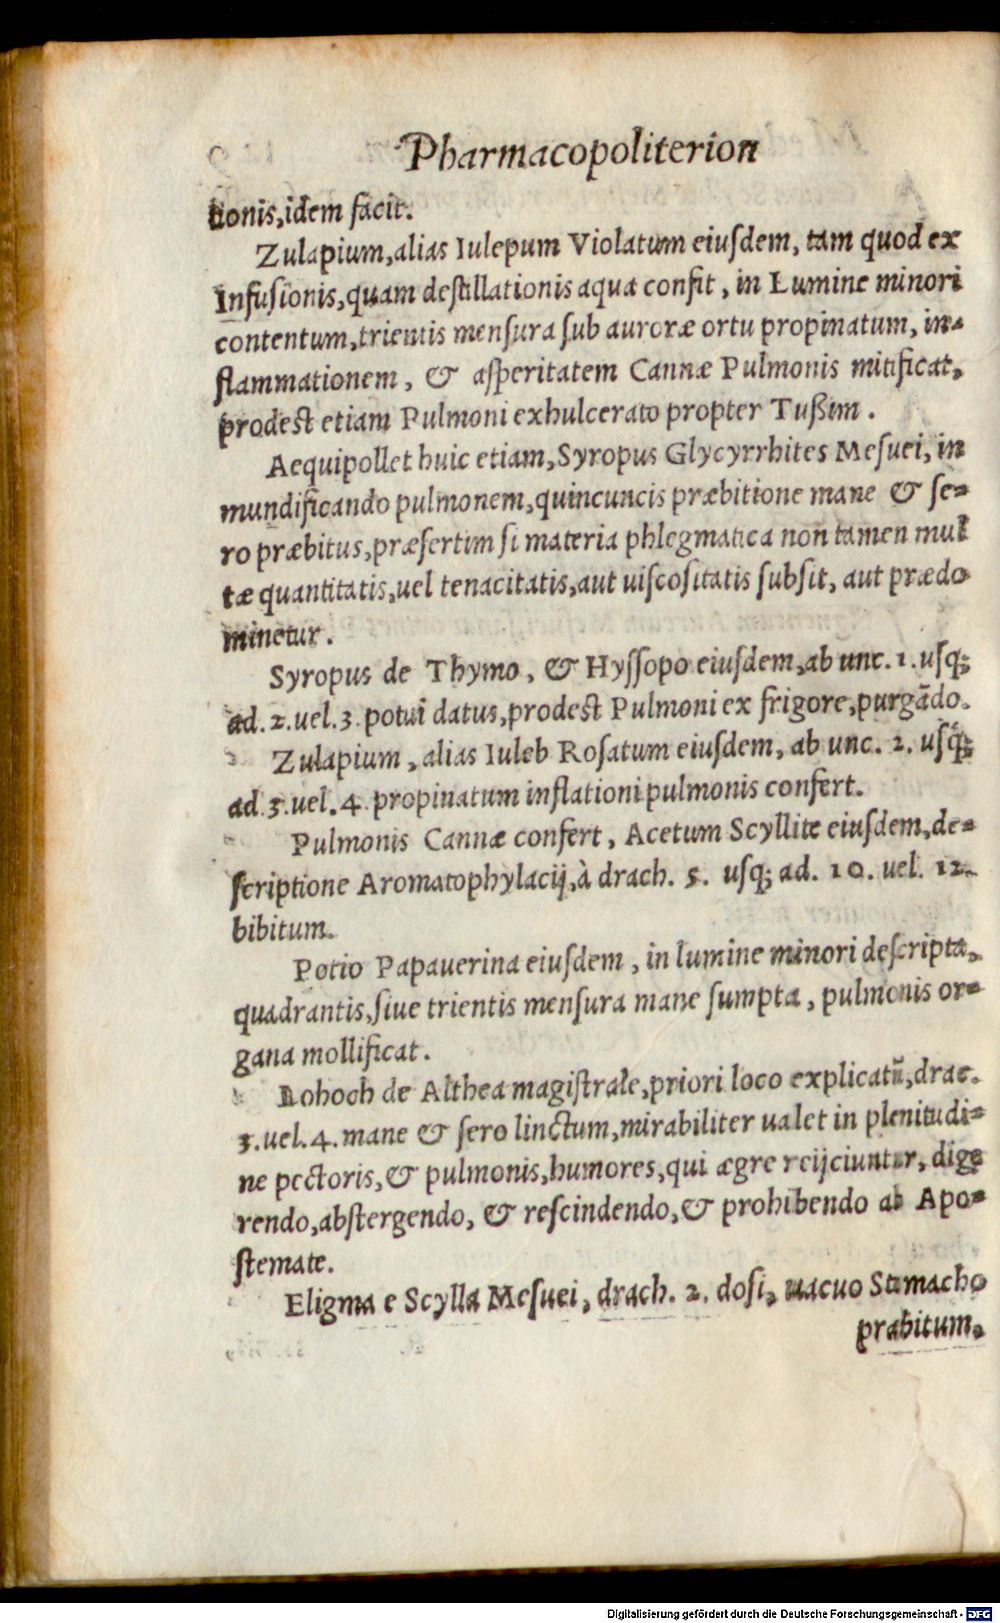 Pharmacopoliterion
tionis,idem facit.
Zulapium,alias Iulepum Violatum eiusdem, tam quod ex
Infusionis,quam destillationis aqua confit, in Lumine minori
contentum,trientis mensura sub auroræ ortu propinatum, in-
flammationem, & asperitatem Cannæ Pulmonis mitificat,
prodest etiam Pulmoni exhulcerato propter Tußim.
Aequipollet huic etiam,Syropus Glycyrrhites Mesuei, in
mundificando pulmonem,quincuncis præbitione mane & se-
ro præbitus,præsertim si materia phlegmatica non tamen mul
tæ quantitatis,uel tenacitatis,aut uiscositatis subsit, aut prædo
minetur.
Syropus de Thymo, & Hyssopo eiusdem,ab unc. 1. usq;
ad. 2. uel. 3. potui datus,prodest Pulmoni ex frigore,purgādo.
Zulapium, alias Iuleb Rosatum eiusdem, ab unc. 2. usq;
ad. 3. uel. 4. propinatum inflationi pulmonis confert.
Pulmonis Cannæ confert, Acetum Scyllite eiusdem,de-
scriptione Aromatophylacij,à drach. 5. usq; ad. 10. uel. 12.
bibitum.
Potio Papauerina eiusdem, in lumine minori descripta,
quadrantis,siue trientis mensura mane sumpta, pulmonis or-
gana mollificat.
Lohoch de Althea magistrale,priori loco explicatū,drac.
3. uel. 4. mane & sero linctum,mirabiliter ualet in plenitudi-
ne pectoris,& pulmonis,humores,qui ægre reijciuntur, dige
rendo,abstergendo, & rescindendo,& prohibendo ab Apo-
stemate.
Eligma e Scylla Mesuei, drach. 2. dosi, uacuo Stomacho
præbitum.
Digitalisierung gefördert durch die Deutsche Forschungsgemeinschaft - DFG